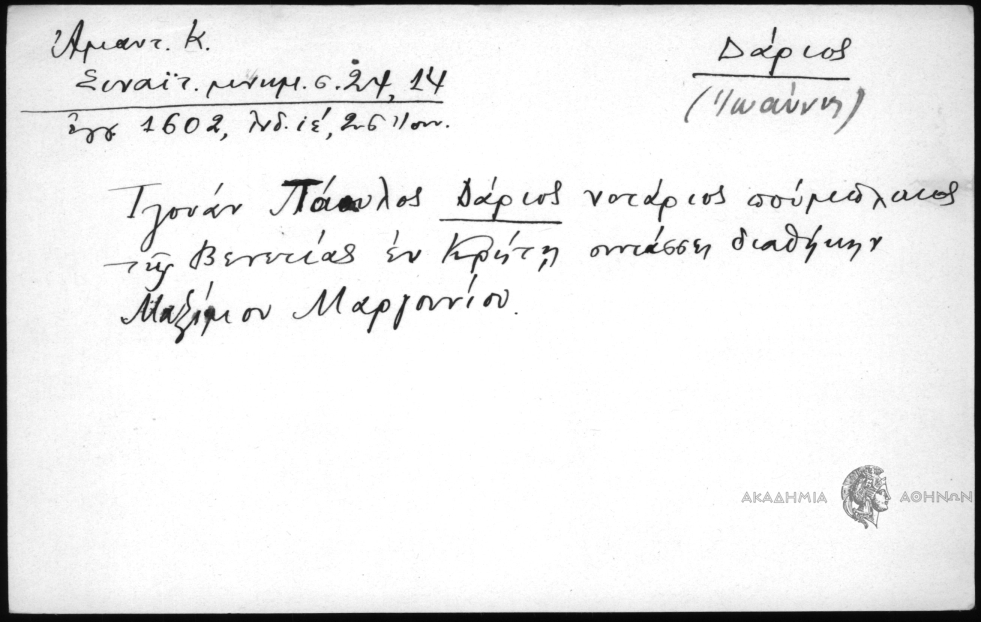 Ἀμαντ. Κ.
Σιναϊτ. μνημ. σ. 24, 14
ἔγγ 1602, Ἰνδ. ιέ, 25 Ἰουν.
Δάριος
(Ἰωάννης)
Τζουάν Πάουλος Δάριος νοτάριος πούμπλικος
τῆς Βενετίας ἐν Κρήτῃ συντάσσει διαθήκην
Μαξίμου Μαργουνίου.
ΑΚΑΔΗΜΙΑ ΑΘΗΝΩΝ